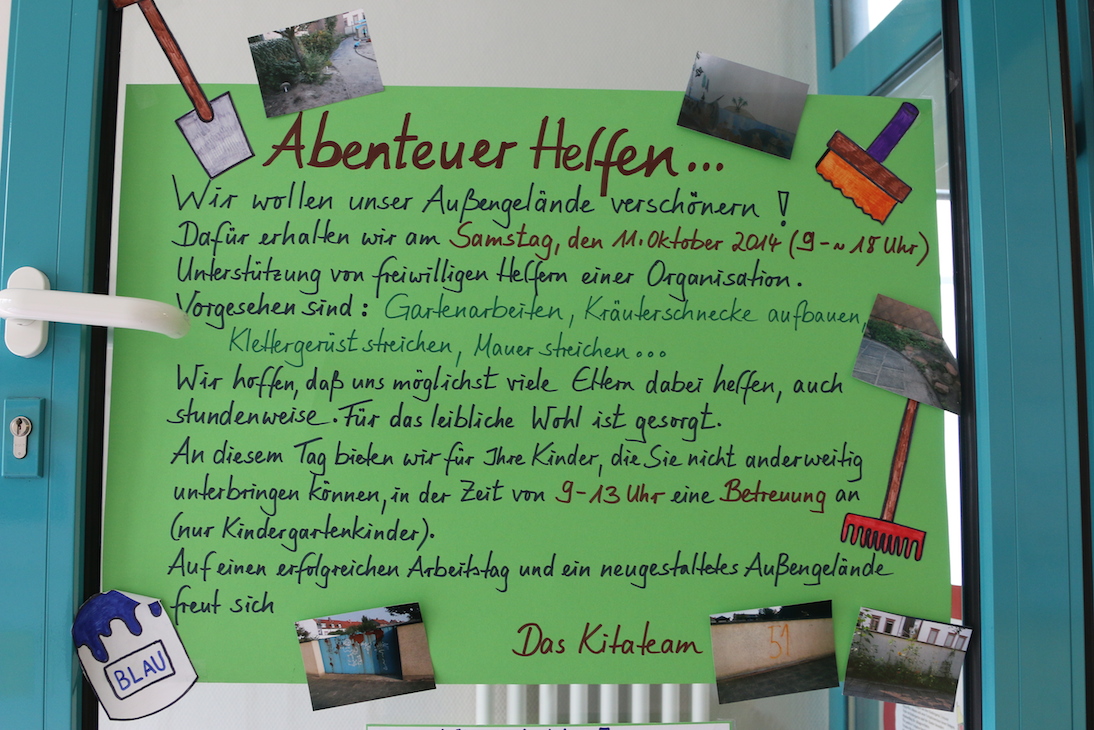 Abenteuer Helfen...
Wir wollen unser Außengelände verschönern !
Dafür erhalten wir am Samstag, den 11. Oktober 2014 (9 - ~ 18 Uhr)
Unterstützung von freiwilligen Helfern einer Organisation.
Vorgesehen sind : Gartenarbeiten, Kräuterschnecke aufbauen,
Klettergerüst streichen, Mauer streichen ...
Wir hoffen, daß uns möglichst viele Eltern dabei helfen, auch
stundenweise. Für das leibliche Wohl ist gesorgt.
An diesem Tag bieten wir für Ihre Kinder, die Sie nicht anderweitig
unterbringen können, in der Zeit von 9-13 Uhr eine Betreuung an
(nur Kindergartenkinder).
Auf einen erfolgreichen Arbeitstag und ein neugestaltetes Außengelände
freut sich
Das Kitateam
BLAU
51